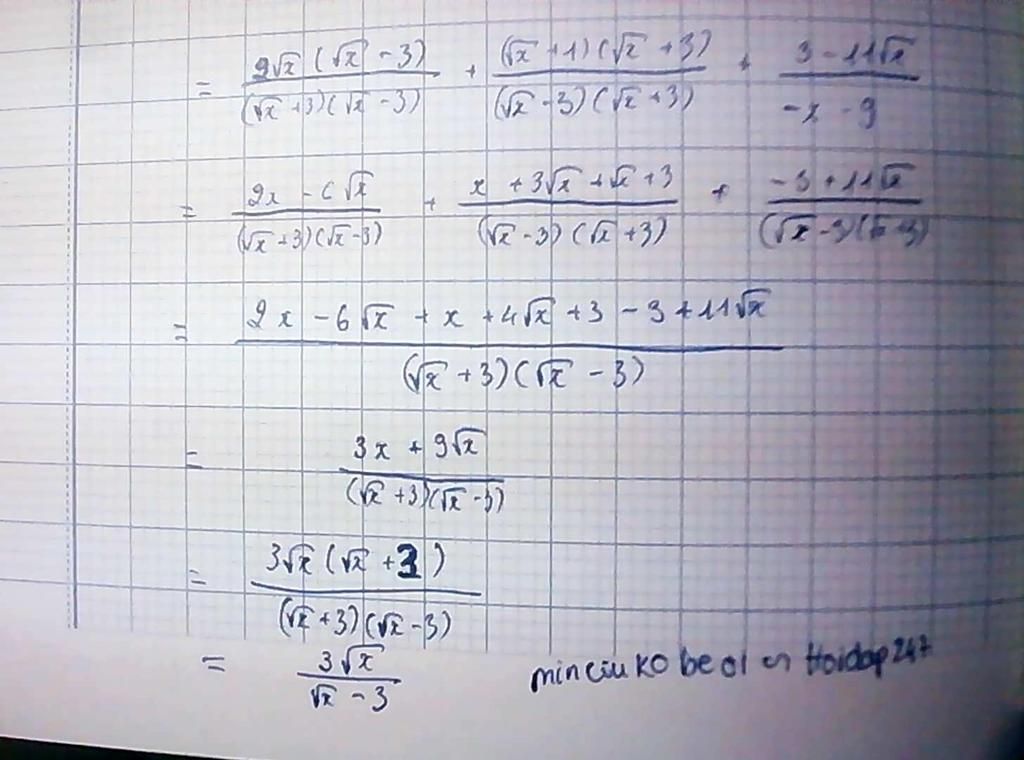 = 2√x (√x - 3) / (√x + 3)(√x - 3) + (√x + 1)(√x + 3) / (√x - 3)(√x + 3) + 3 - 11√x / -x - 9
= 2x - 6√x / (√x + 3)(√x - 3) + x + 3√x + √x + 3 / (√x - 3)(√x + 3) + -3 + 11√x / (√x - 3)(√x + 3)
= 2x - 6√x + x + 4√x + 3 - 3 + 11√x / (√x + 3)(√x - 3)
= 3x + 9√x / (√x + 3)(√x - 3)
= 3√x (√x + 3) / (√x + 3)(√x - 3)
= 3√x / √x - 3
Hoidap247